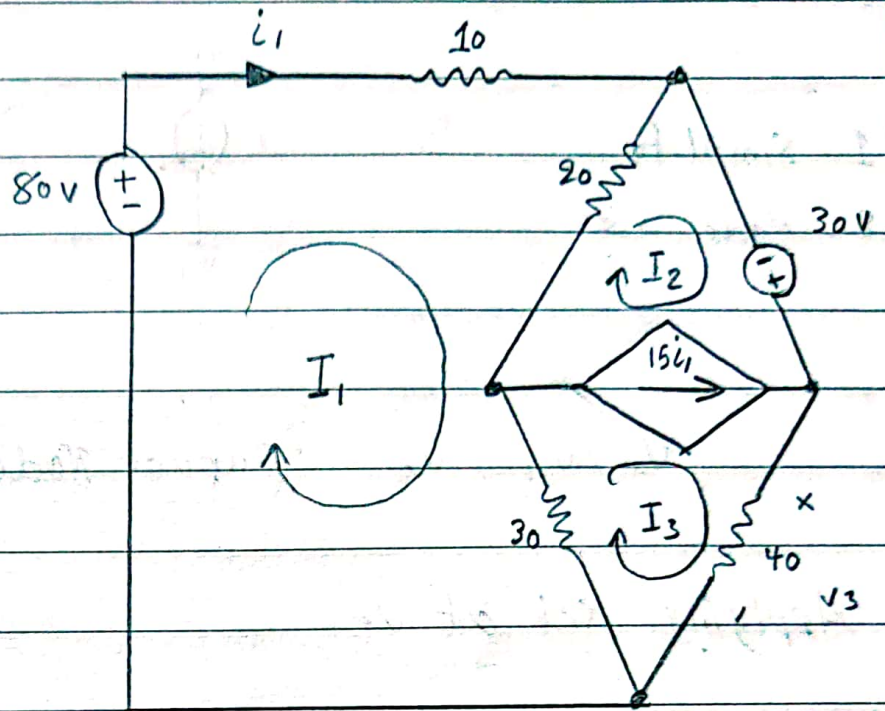 i₁
10
80v
+
-
20
30V
-
+
I₂
15i₁
I₁
30
I₃
x
40
v3